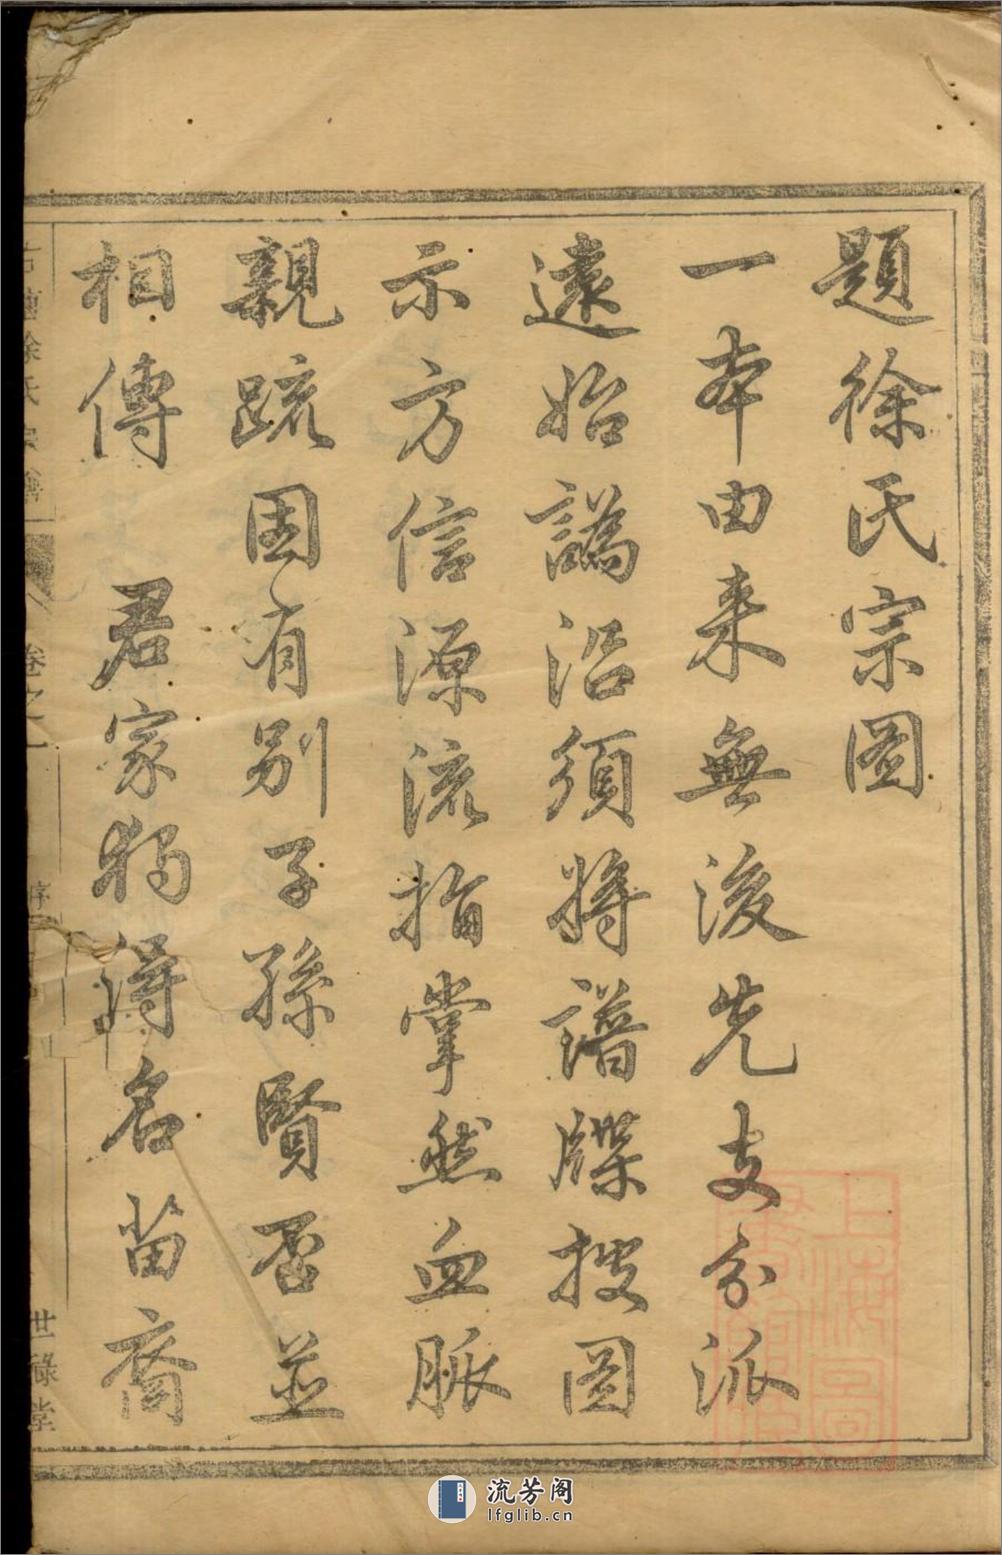 題徐氏宗圖
一本由来無後先支分派
遠始譌沿須將譜牒披圖
示方信源流指掌然血脈
親疏固有別子孫賢否並
相傳 君家獨得名苗裔
徐氏宗譜
卷之一
世祿堂
流芳阁
lfglib.cn